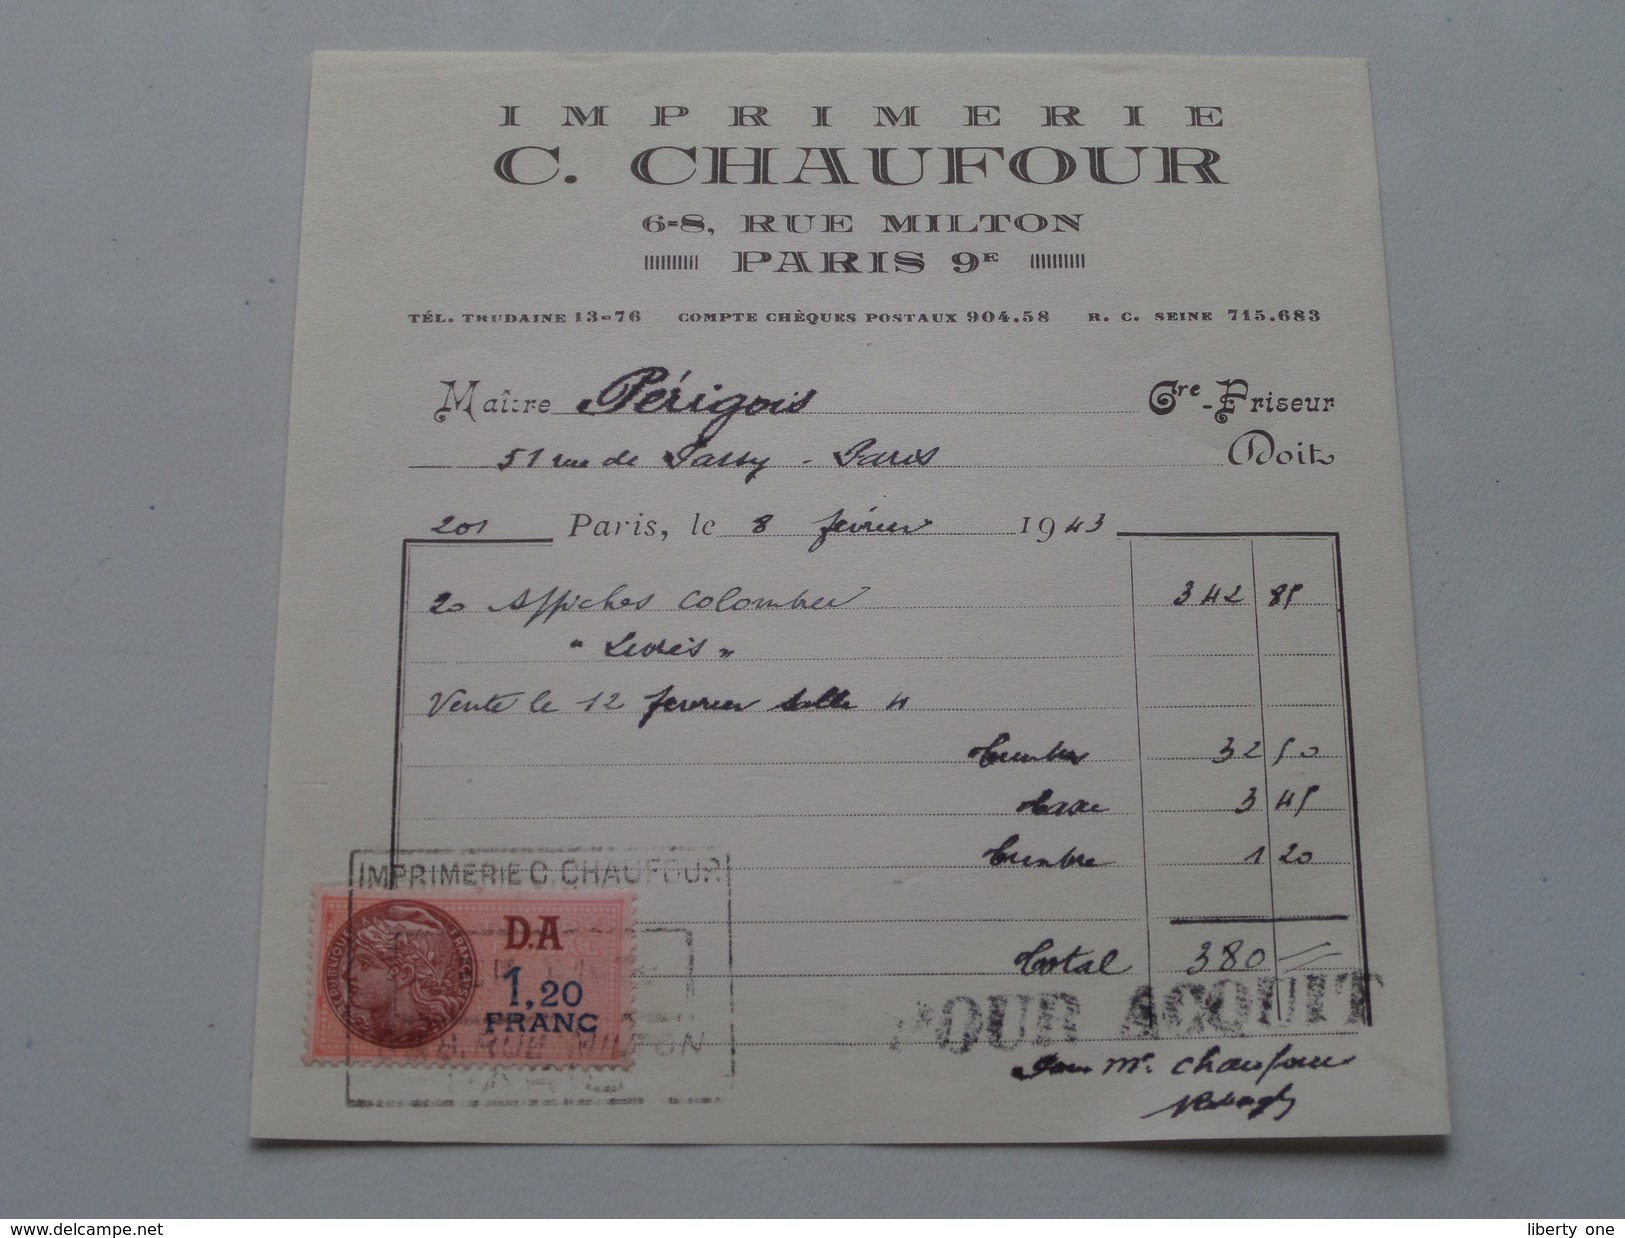 IMPRIMERIE
C. CHAUFOUR
6-8, RUE MILTON
PARIS 9E
TÉL. TRUDAINE 13-76 COMPTE CHÈQUES POSTAUX 904.58 R. C. SEINE 715.683
Maître Périgois Cre-Priseur
51 rue de Passy - Paris Doit
201 Paris, le 8 février 1943
20 Affiches Colombier 342 85
" Livres "
Vente le 12 fevrier salle 4
timbres 32 50
taxe 3 45
timbre 1 20
Total 380 =
POUR ACQUIT
Pour Mr. Chaufour
IMPRIMERIE C. CHAUFOUR
RUE MILTON
RÉPUBLIQUE FRANÇAISE
D.A
1,20
FRANC
www.delcampe.net liberty_one